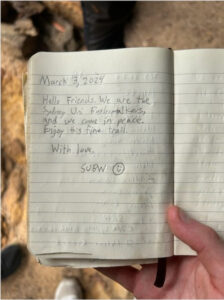 March 3, 2024
Hello Friends. We are the
Sydney Uni Bushwalkers,
and we come in peace.
Enjoy this fine trail.
With love,
SUBW ☺